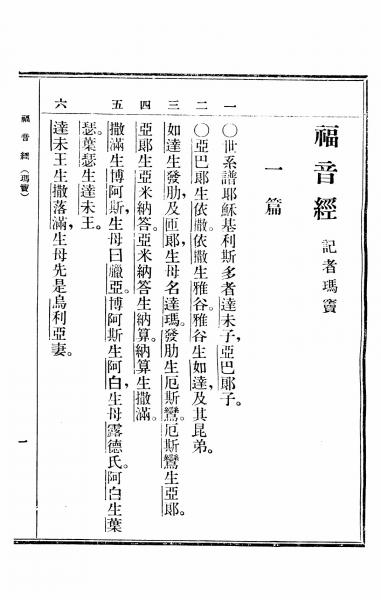 福音經 記者瑪竇
一篇
一 〇世系譜耶穌基利斯多者達未子,亞巴郎子。
二 〇亞巴郎生依撒。依撒生雅谷。雅谷生如達,及其昆弟。
三 如達生發肋,及匝郎,生母名達瑪。發肋生厄斯鸞。厄斯鸞生亞郎。
四 亞郎生亞米納答。亞米納答生納算。納算生撒滿。
五 撒滿生博阿斯,生母曰臘亞。博阿斯生阿白,生母露德氏。阿白生葉
瑟。葉瑟生達未王。
六 達未王生撒落滿,生母先是烏利亞妻。
福音經 (瑪竇)
一